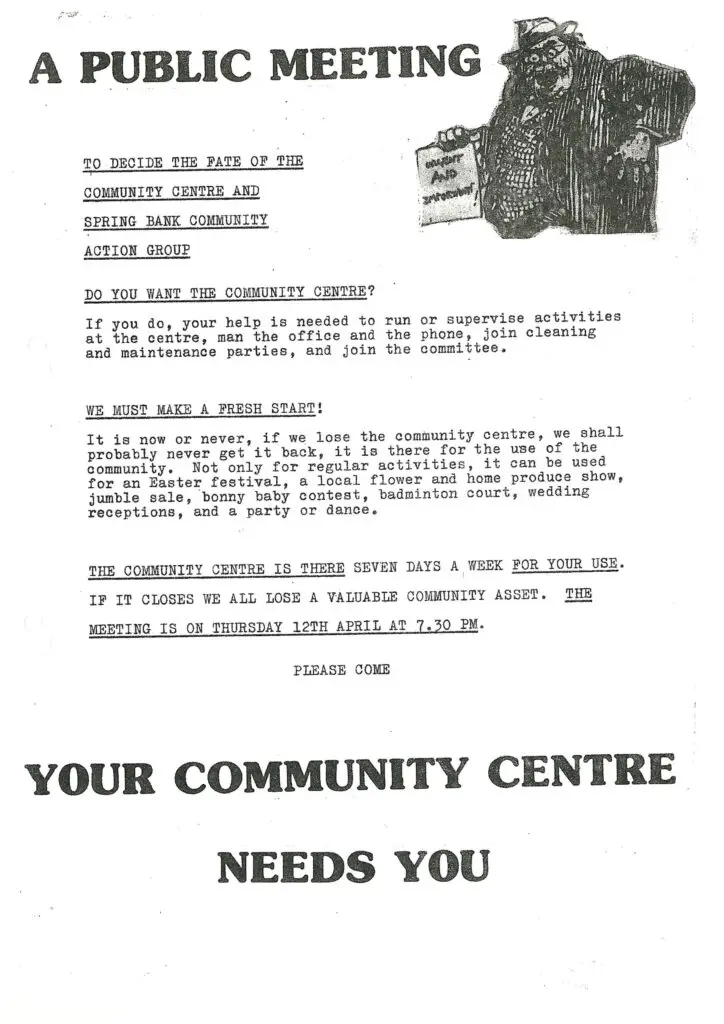 A PUBLIC MEETING
URGENT
AND
IMPORTANT
TO DECIDE THE FATE OF THE
COMMUNITY CENTRE AND
SPRING BANK COMMUNITY
ACTION GROUP
DO YOU WANT THE COMMUNITY CENTRE?
If you do, your help is needed to run or supervise activities
at the centre, man the office and the phone, join cleaning
and maintenance parties, and join the committee.
WE MUST MAKE A FRESH START!
It is now or never, if we lose the community centre, we shall
probably never get it back, it is there for the use of the
community.  Not only for regular activities, it can be used
for an Easter festival, a local flower and home produce show,
jumble sale, bonny baby contest, badminton court, wedding
receptions, and a party or dance.
THE COMMUNITY CENTRE IS THERE SEVEN DAYS A WEEK FOR YOUR USE.
IF IT CLOSES WE ALL LOSE A VALUABLE COMMUNITY ASSET.  THE
MEETING IS ON THURSDAY 12TH APRIL AT 7.30 PM.
PLEASE COME
YOUR COMMUNITY CENTRE
NEEDS YOU